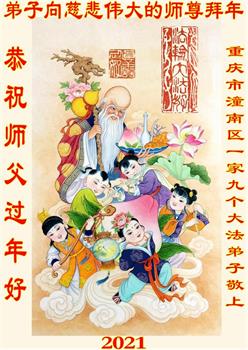 弟子向慈悲伟大的师尊拜年
恭祝师父过年好
重庆市潼南区一家九个大法弟子敬上
法轮大法好
2021